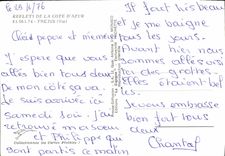 le 29/4/76
REFLETS DE LA COTE D'AZUR
FREJUS (Var)
Chers pepere et memere
J'espere que vous
allés bien tous deux
De mon côté sa va
je suis arrivée ici
samedi soir. J'ai
retrouvé ma soeur
et Philippe qui
sont partis ce matin
Il fait très beau
et je me baigne
tous les jours.
Avant hier nous
sommes allés voir
des grottes.
Elles étaient bel
les.
Je vous embrasse
bien fort tous
deux
Chantal